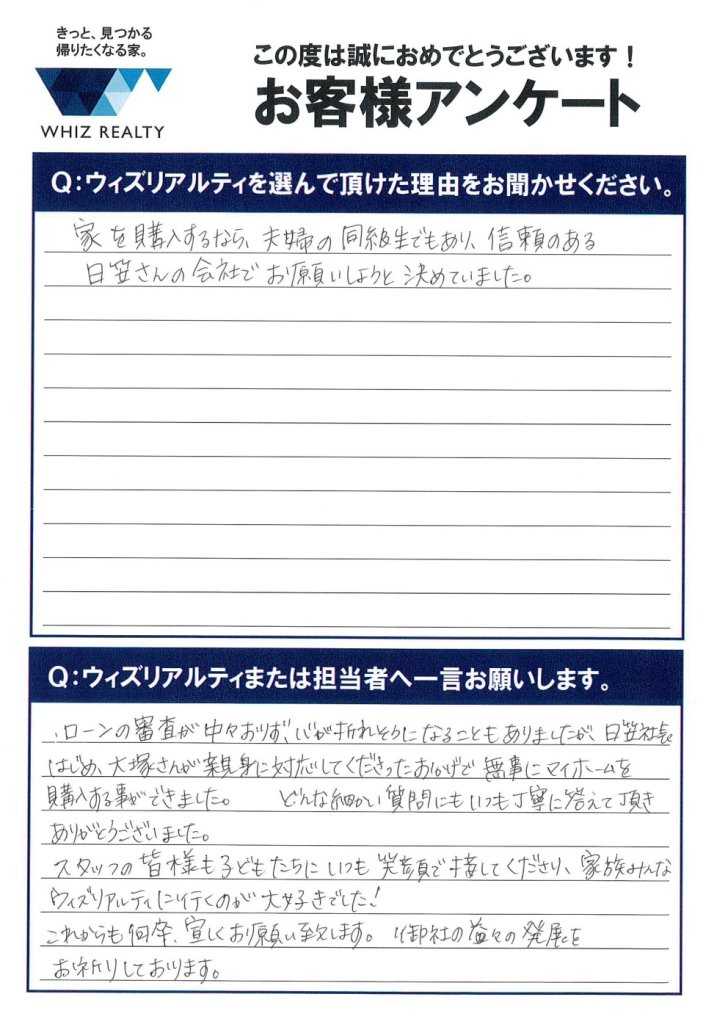 きっと、見つかる
帰りたくなる家。
WHIZ REALTY
この度は誠におめでとうございます！
お客様アンケート
Q：ウィズリアルティを選んで頂けた理由をお聞かせください。
家を購入するなら、夫婦の同級生でもあり、信頼のある
日笠さんの会社でお願いしようと決めていました。
Q：ウィズリアルティまたは担当者へ一言お願いします。
ローンの審査が中々おりず、心が折れそうになることもありましたが、日笠社長
はじめ、大塚さんが親身に対応してくださったおかげで無事にマイホームを
購入する事ができました。 どんな細かい質問にもいつも丁寧に答えて頂き
ありがとうございました。
スタッフの皆様も子どもたちにいつも笑顔で接してくださり、家族みんな
ウィズリアルティに行くのが大好きでした！
これからも何卒、宜しくお願い致します。 御社の益々の発展を
お祈りしております。